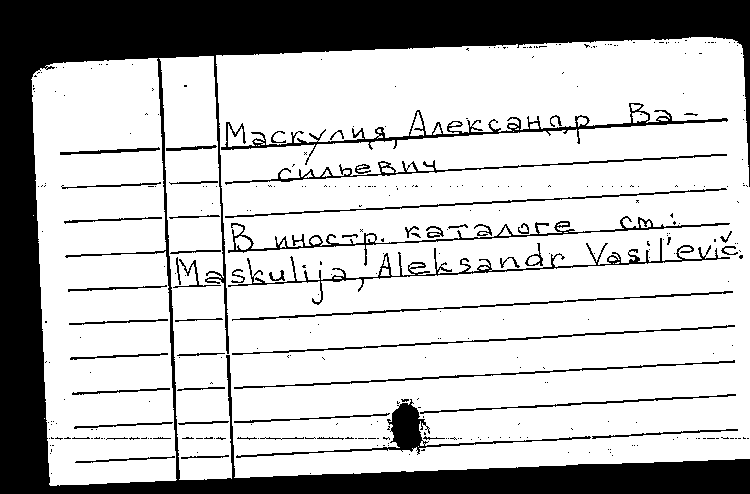 Маскулия, Александр Ва-
сильевич
В иностр. каталоге см.:
Maskulija, Aleksandr Vasil'evič.